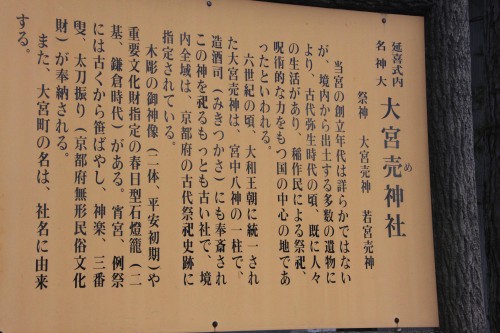 延喜式内
名神大
大宮売神社
め
祭神 大宮売神 若宮売神
当宮の創立年代は詳らかではない
が、境内から出土する多数の遺物に
より、古代弥生時代の頃、既に人々
の生活があり、稲作民による祭祀、
呪術的な力をもつ国の中心の地であ
ったといわれる。
六世紀の頃、大和王朝に統一され
た大宮売神は、宮中八神の一柱で、
造酒司(みきつかさ)にも奉斎され
この神を祀るもっとも古い社で、境
内全域は、京都府の古代祭祀史跡に
指定されている。
木彫の御神像(二体、平安初期)や
重要文化財指定の春日型石燈籠(二
基、鎌倉時代)がある。宵宮、例祭
には古くから笹ばやし、神楽、三番
叟、太刀振り(京都府無形民俗文化
財)が奉納される。
また、大宮町の名は、社名に由来
する。